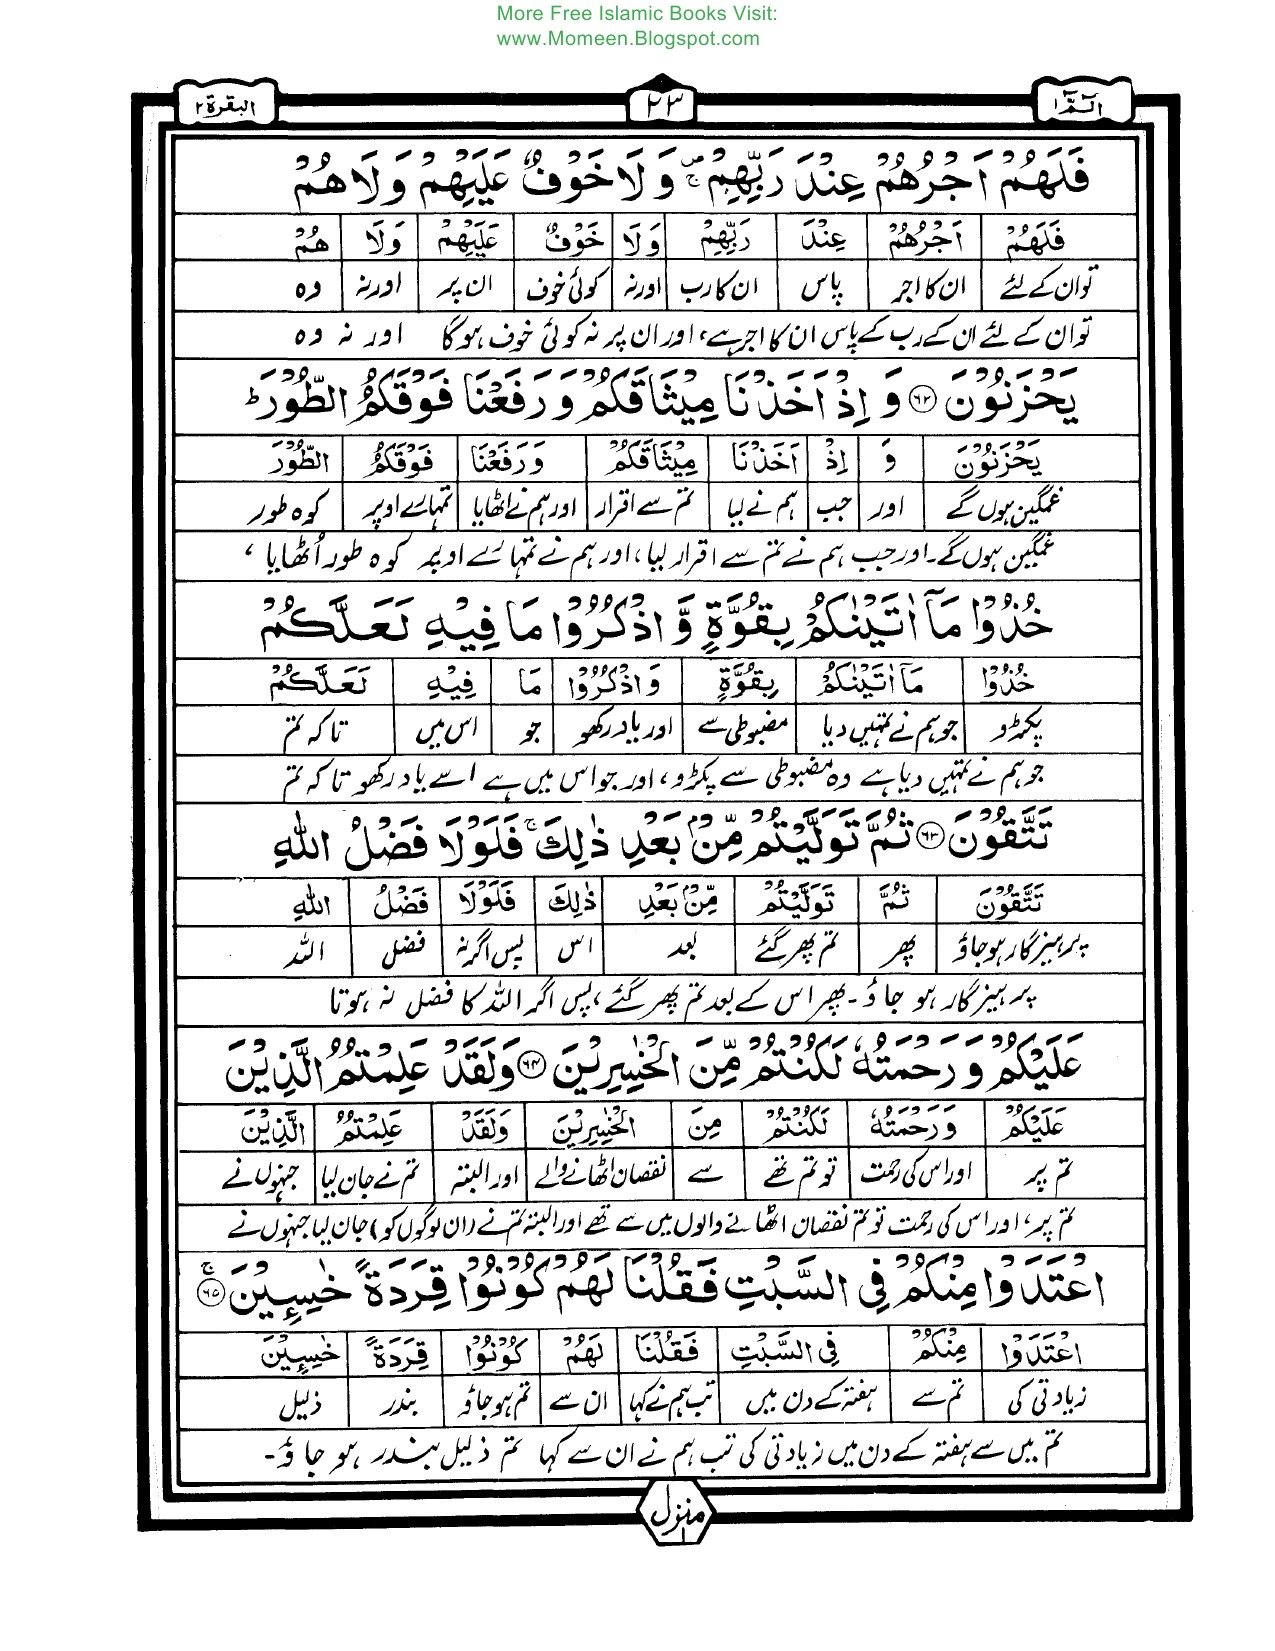 More Free Islamic Books Visit:
www.Momeen.Blogspot.com
الٓمّٓ ١ ٢٣ البقرة ٢
فَلَهُمْ اَجْرُهُمْ عِنْدَ رَبِّهِمْ ۪ۚ وَلَا خَوْفٌ عَلَيْهِمْ وَلَا هُمْ
فَلَهُمْ اَجْرُهُمْ عِنْدَ رَبِّهِمْ وَلَا خَوْفٌ عَلَيْهِمْ وَلَا هُمْ
تو ان کے لئے ان کا اجر پاس ان کا رب اور نہ کوئی خوف ان پر اور نہ وہ
تو ان کے لئے ان کے رب کے پاس ان کا اجر ہے، اور ان پر نہ کوئی خوف ہوگا اور نہ وہ
يَحْزَنُوْنَ ﴿٦٢﴾ وَ اِذْ اَخَذْنَا مِيْثَاقَكُمْ وَرَفَعْنَا فَوْقَكُمُ الطُّوْرَ ؕ
يَحْزَنُوْنَ وَ اِذْ اَخَذْنَا مِيْثَاقَكُمْ وَرَفَعْنَا فَوْقَكُمُ الطُّوْرَ
غمگین ہوں گے اور جب ہم نے لیا تم سے اقرار اور ہم نے اٹھایا تمہارے اوپر کوہ طور
غمگین ہوں گے۔ اور جب ہم نے تم سے اقرار لیا، اور ہم نے تمہارے اوپر کوہ طور اُٹھایا،
خُذُوْا مَآ اٰتَيْنٰكُمْ بِقُوَّةٍ وَّ اذْكُرُوْا مَا فِيْهِ لَعَلَّكُمْ
خُذُوْا مَآ اٰتَيْنٰكُمْ بِقُوَّةٍ وَ اذْكُرُوْا مَا فِيْهِ لَعَلَّكُمْ
پکڑو جو ہم نے تمہیں دیا مضبوطی سے اور یاد رکھو جو اس میں تاکہ تم
جو ہم نے تمہیں دیا ہے وہ مضبوطی سے پکڑو، اور جو اس میں ہے اسے یاد رکھو تاکہ تم
تَتَّقُوْنَ ﴿٦٣﴾ ثُمَّ تَوَلَّيْتُمْ مِّنْۢ بَعْدِ ذٰلِكَ ۚ فَلَوْلَا فَضْلُ اللّٰهِ
تَتَّقُوْنَ ثُمَّ تَوَلَّيْتُمْ مِّنْۢ بَعْدِ ذٰلِكَ فَلَوْلَا فَضْلُ اللّٰهِ
پرہیزگار ہوجاؤ پھر تم پھر گئے بعد اس پس اگر نہ فضل اللہ
پرہیزگار ہو جاؤ۔ پھر اس کے بعد تم پھر گئے، پس اگر اللہ کا فضل نہ ہوتا
عَلَيْكُمْ وَرَحْمَتُهٗ لَكُنْتُمْ مِّنَ الْخٰسِرِيْنَ ﴿٦٤﴾ وَلَقَدْ عَلِمْتُمُ الَّذِيْنَ
عَلَيْكُمْ وَرَحْمَتُهٗ لَكُنْتُمْ مِنَ الْخٰسِرِيْنَ وَلَقَدْ عَلِمْتُمُ الَّذِيْنَ
تم پر اور اس کی رحمت تو تم تھے سے نقصان اٹھانے والے اور البتہ تم نے جان لیا جنہوں نے
تم پر، اور اس کی رحمت تو تم نقصان اٹھانے والوں میں سے تھے اور البتہ تم نے (ان لوگوں کو) جان لیا جنہوں نے
اعْتَدَوْا مِنْكُمْ فِي السَّبْتِ فَقُلْنَا لَهُمْ كُوْنُوْا قِرَدَةً خٰسِـِٕيْنَ ﴿٦٥﴾ ۚ
اعْتَدَوْا مِنْكُمْ فِي السَّبْتِ فَقُلْنَا لَهُمْ كُوْنُوْا قِرَدَةً خٰسِـِٕيْنَ
زیادتی کی تم سے ہفتہ کے دن میں تب ہم نے کہا ان سے تم ہوجاؤ بندر ذلیل
تم میں سے ہفتہ کے دن میں زیادتی کی تب ہم نے ان سے کہا تم ذلیل بندر ہو جاؤ۔
منزل ١